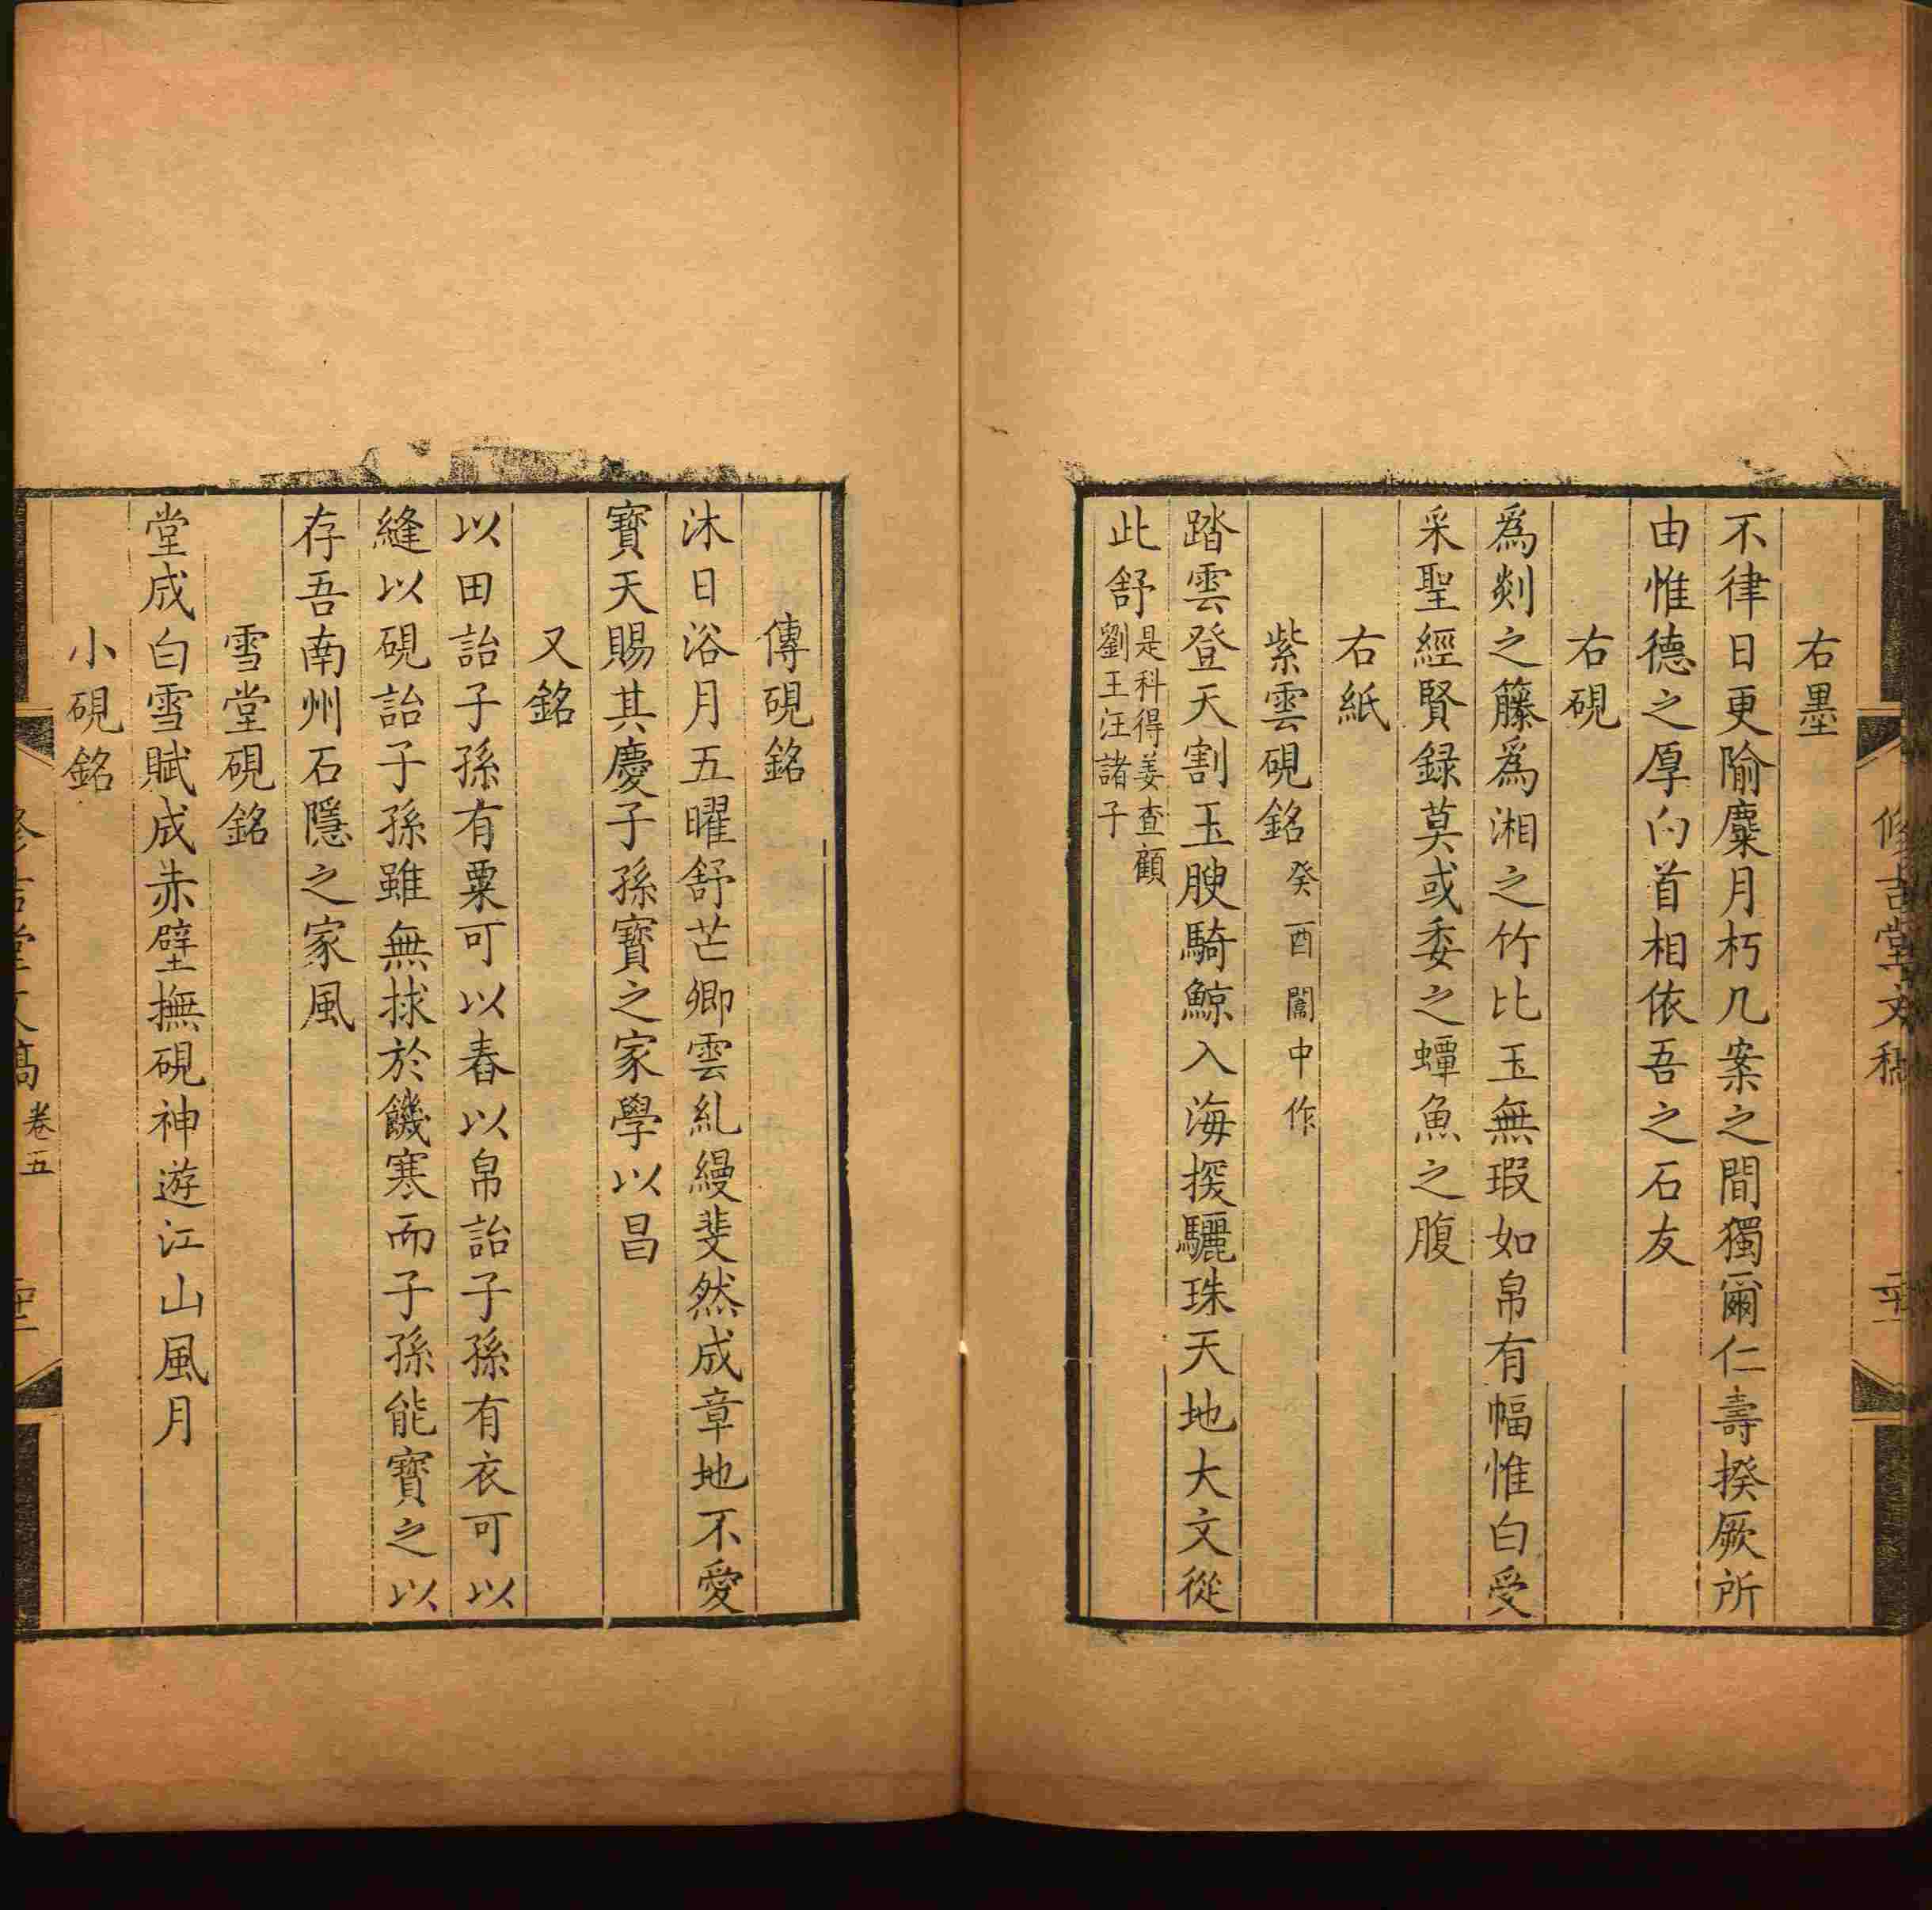 右墨
不律日更隃麋月朽几案之間獨爾仁壽揆厥所
由惟德之厚白首相依吾之石友
右硯
爲剡之籐爲湘之竹比玉無瑕如帛有幅惟白受
采聖經賢録莫或委之蟫魚之腹
右紙
紫雲硯銘癸酉闈中作
踏雲登天割玉腴騎鯨入海探驪珠天地大文從
此舒是科得姜查顧
劉王汪諸子
傳硯銘
沐日浴月五曜舒芒卿雲糺縵斐然成章地不愛
寳天賜其慶子孫寳之家學以昌
又銘
以田詒子孫有粟可以舂以帛詒子孫有衣可以
縫以硯詒子孫雖無捄於饑寒而子孫能寳之以
存吾南州石隱之家風
雪堂硯銘
堂成白雪賦成赤壁撫硯神遊江山風月
小硯銘
修吉堂文稿
卷五